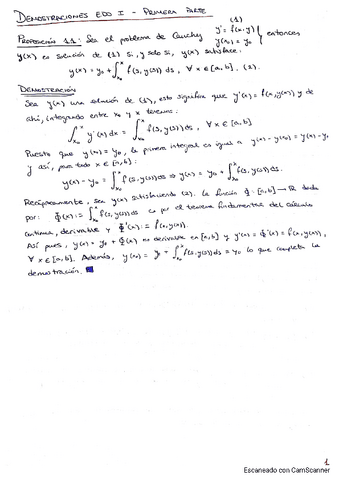 DEMOSTRACIONES EDO I - PRIMERA PARTE
PROPOSICIÓN 1.1: Sea el problema de Cauchy (1) y' = f(x,y) y(x₀) = y₀ } entonces
y(x) es solución de (1) si, y solo si, y(x) satisface:
y(x) = y₀ + ∫_{x₀}^{x} f(s, y(s)) ds, ∀ x ∈ [a,b]. (2).
DEMOSTRACIÓN
Sea y(x) una solución de (1), esto significa que y'(x) = f(x, y(x)) y de
ahí, integrando entre x₀ y x tenemos:
∫_{x₀}^{x} y'(x) dx = ∫_{x₀}^{x} f(s, y(s)) ds, ∀ x ∈ [a,b]
Puesto que y(x₀) = y₀, la primera integral es igual a y(x) - y(x₀) = y(x) - y₀
y así, para todo x ∈ [a,b]:
y(x) - y₀ = ∫_{x₀}^{x} f(s, y(s)) ds ⇒ y(x) = y₀ + ∫_{x₀}^{x} f(s, y(s)) ds.
Recíprocamente, sea y(x) satisfaciendo (2). La función Φ: [a,b] → ℝ dada
por: Φ(x) := ∫_{x₀}^{x} f(s, y(s)) ds es por el teorema fundamental del cálculo
continua, derivable y Φ'(x) := f(x, y(x)).
Así pues, y(x) = y₀ + Φ(x) es derivable en [a,b] y y'(x) = Φ'(x) = f(x, y(x)),
∀ x ∈ [a,b]. Además, y(x₀) = y₀ + ∫_{x₀}^{x₀} f(s, y(s)) ds = y₀ lo que completa la
demostración.
1
Escaneado con CamScanner